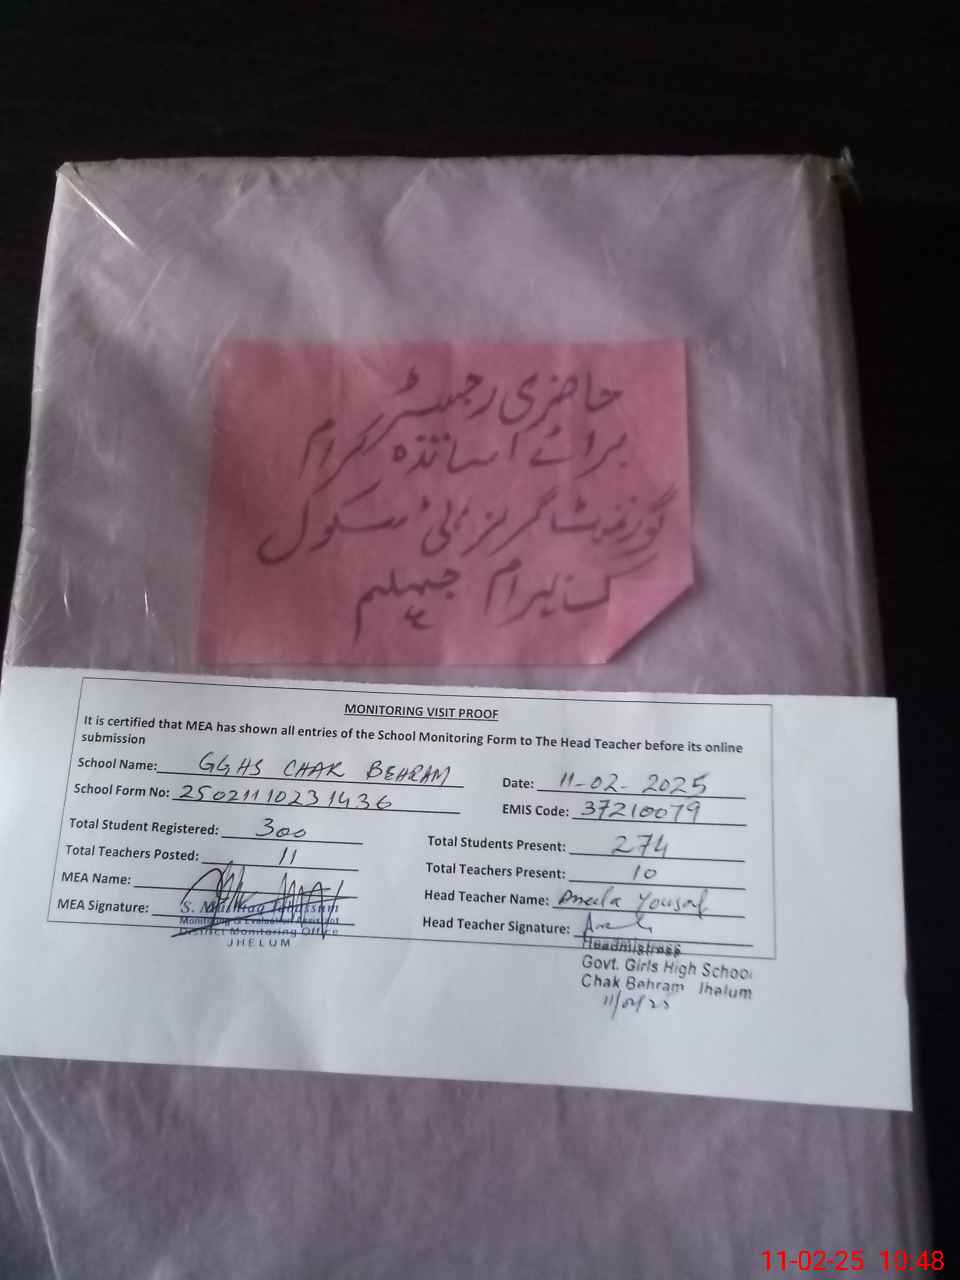 حاضری رجسٹر
برائے اساتذہ کرام
گورنمنٹ گرلز ہائی سکول
چک بہرام جہلم
MONITORING VISIT PROOF
It is certified that MEA has shown all entries of the School Monitoring Form to The Head Teacher before its online
submission
School Name: GGHS CHAK BEHRAM
Date: 11-02-2025
School Form No: 25021110231436
EMIS Code: 37210079
Total Student Registered: 300
Total Students Present: 274
Total Teachers Posted: 11
Total Teachers Present: 10
MEA Name:
Head Teacher Name: Aneela Yousaf
MEA Signature:
Head Teacher Signature:
Monitoring & Evaluation Assistant
District Monitoring Office
JHELUM
Headmistress
Govt. Girls High School
Chak Behram Jhelum
11/02/25
11-02-25 10:48